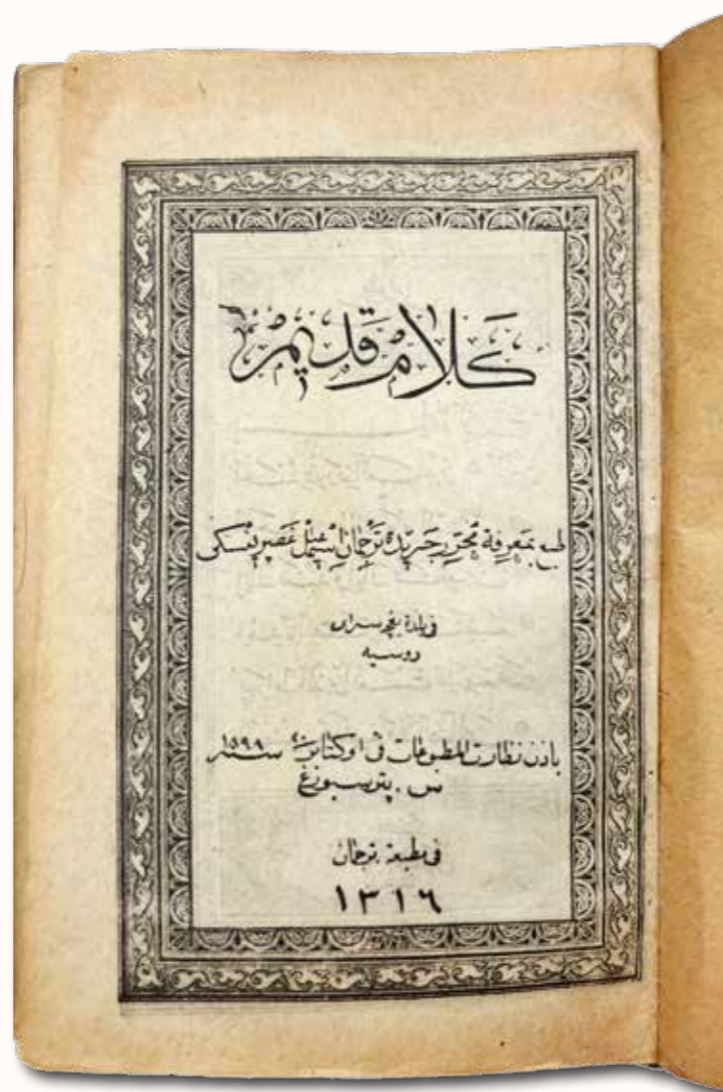 كلام قديم
طبع بمعرفة محرر جريدة ترجمان اسمعيل غصپرينسكى
فى بلدة بغچه سراى
روسيه
باذن نظارت المطبوعات فى اوكتابر سنه
س. پترسبورغ
فى مطبعة ترجمان
١٣١٦